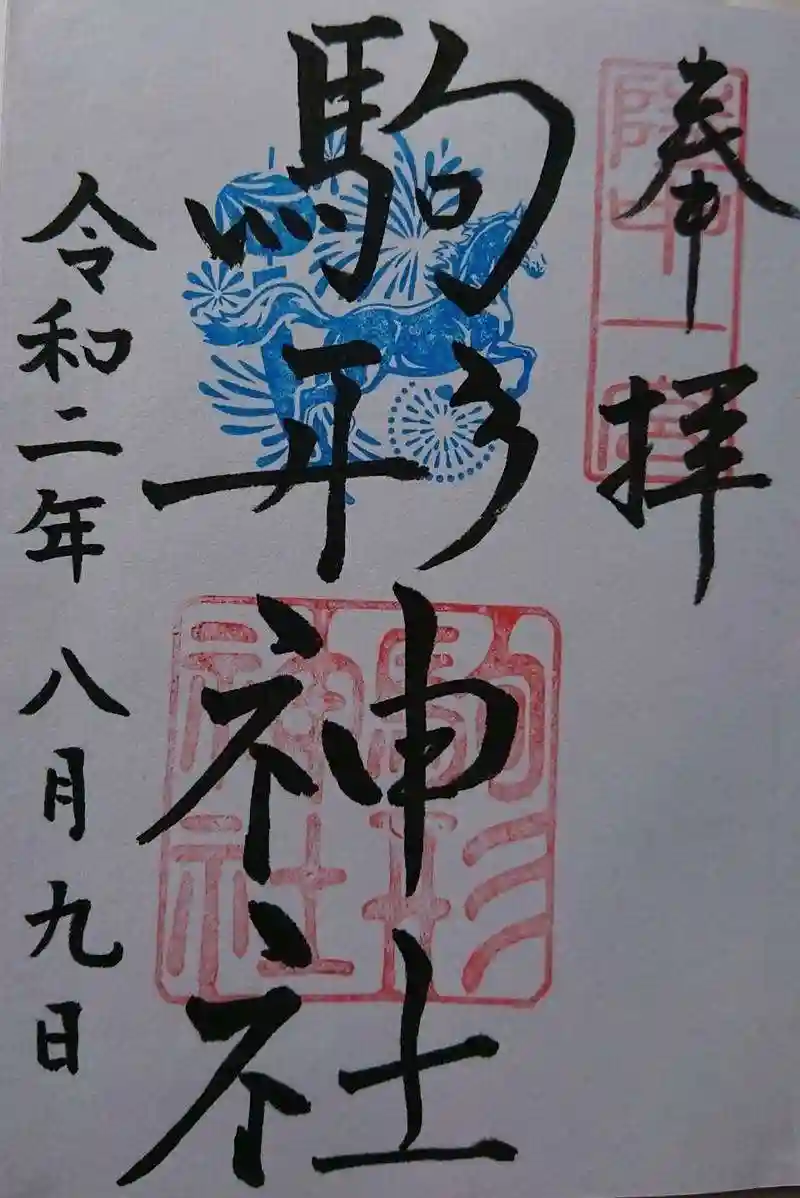 奉拝
陸中一宮
駒形神社
駒形神社
令和二年八月九日